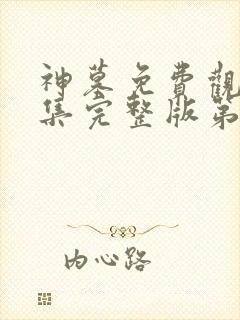 神墓免費觀
集完整版第
内心路